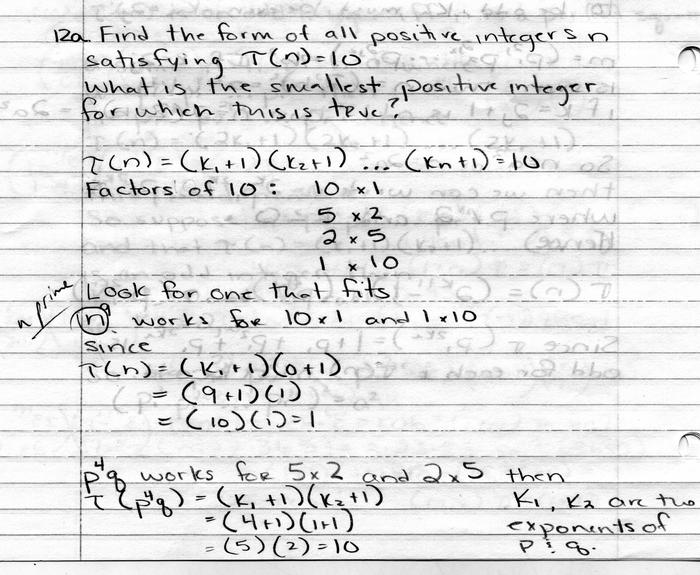 12a. Find the form of all positive integers n
satisfying τ(n)=10
What is the smallest positive integer
for which this is true?
τ(n) = (K₁+1)(K₂+1) ... (Kn+1)=10
Factors of 10: 10 x 1
5 x 2
2 x 5
1 x 10
Look for one that fits
n prime
n⁹ works for 10x1 and 1x10
since
τ(n) = (K₁+1)(0+1)
= (9+1)(1)
= (10)(1)=1
p⁴q works for 5x2 and 2x5 then
τ(p⁴q) = (K₁+1)(K₂+1)
= (4+1)(1+1)
= (5)(2)=10
K₁, K₂ are two
exponents of
p & q.